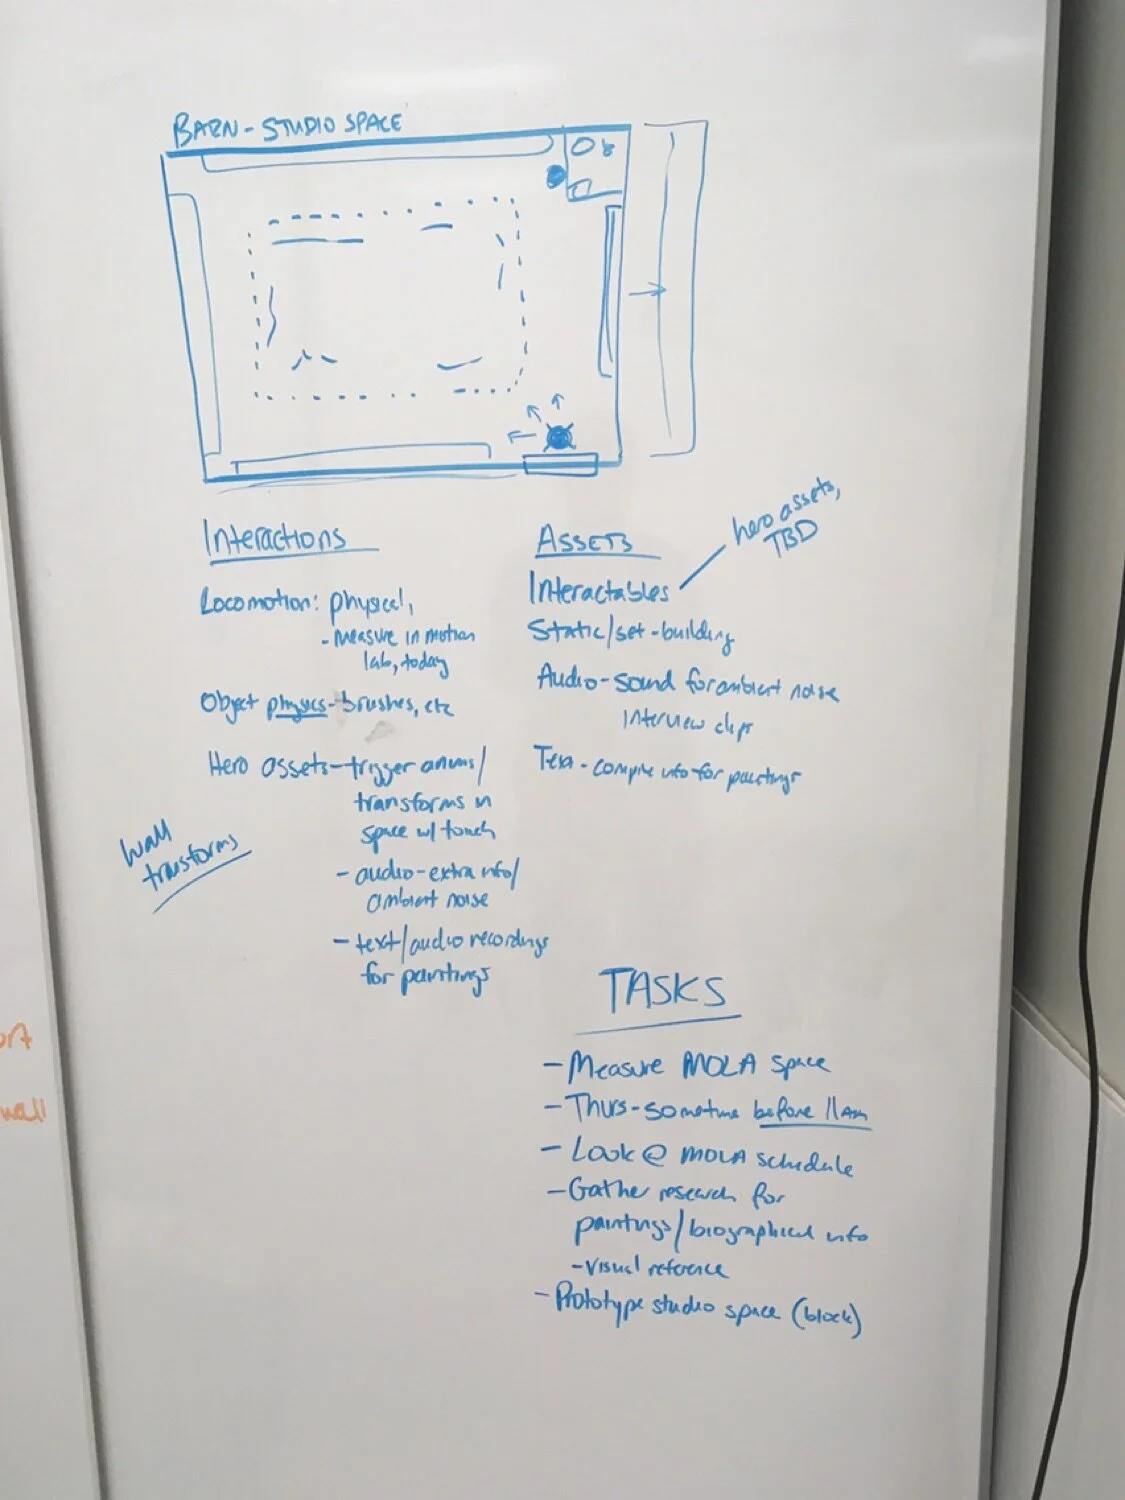 BARN - STUDIO SPACE
Interactions
Locomotion: physical,
- measure in motion
lab, today
Object physics - brushes, etc
Hero assets - trigger anims/
transforms in
space w/ touch
- audio - extra info/
ambient noise
- text/audio recordings
for paintings
wall
transforms
ASSETS
hero assets,
TBD
Interactables
Static/set-building
Audio - sound for ambient noise
Interview clips
Text - compile info for paintings
TASKS
- Measure MOLA space
- Thurs - sometime before 11am
- Look @ MOLA schedule
- Gather research for
paintings/biographical info
- visual reference
- Prototype studio space (block)
wall